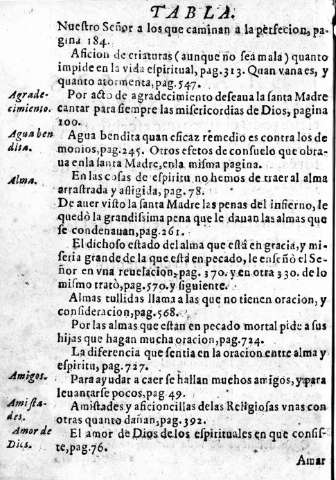 TABLA.
Nuestro Señor a los que caminan a la perfecion, pa-
gina 184.
Aficion de criaturas (aunque no sea mala) quanto
impide en la vida espiritual, pag. 313. Quan vana es, y
quanto atormenta, pag. 547.
Agrade-
cimiento.
Por acto de agradecimiento deseaua la santa Madre
cantar para siempre las misericordias de Dios, pagina
100.
Agua ben
dita.
Agua bendita quan eficaz remedio es contra los de
monios, pag. 245. Otros efetos de consuelo que obra-
ua en la santa Madre, en la misma pagina.
Alma.
En las cosas de espiritu no hemos de traer al alma
arrastrada y afligida, pag. 78.
De auer visto la santa Madre las penas del infierno, le
quedò la grandissima pena que le dauan las almas que
se condenauan, pag. 261.
El dichoso estado del alma que està en gracia, y mi-
seria grande de la que està en pecado, le enseñò el Se-
ñor en vna reuelacion, pag. 370. y en otra 330. de lo
mismo tratò, pag. 570. y siguiente.
Almas tullidas llama a las que no tienen oracion, y
consideracion, pag. 568.
Por las almas que estan en pecado mortal pide a sus
hijas que hagan mucha oracion, pag. 724.
La diferencia que sentia en la oracion entre alma y
espiritu, pag. 727.
Amigos.
Para ayudar a caer se hallan muchos amigos, y para
leuantarse pocos, pag 49.
Amista-
des.
Amistades y aficioncillas de las Religiosas vnas con
otras quanto dañan, pag. 392.
Amor de
Dios.
El amor de Dios de los espirituales en que consis-
te, pag. 76.
Amar